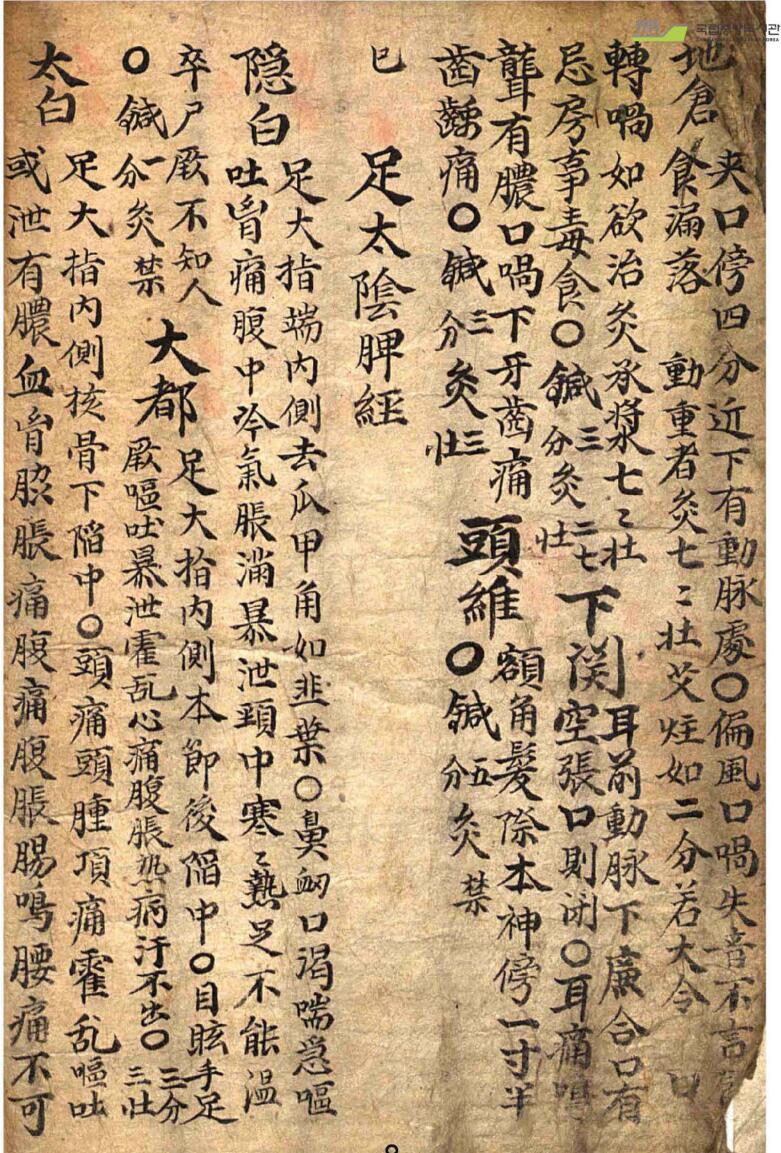 地倉
夾口傍四分近下有動脉處〇偏風口喎失音不言
食漏落 動重者灸七〻壯艾炷如二分若大令 口
轉喎如欲治灸承漿七〻壯
忌房事毒食〇鍼三分灸二七壯
下関
耳前動脉下廣合口有
空張口則闭〇耳痛
聾有膿口喎下牙齒痛
齒齲痛〇鍼三分灸三壯
頭維
額角髮際本神傍一寸半
〇鍼五分灸禁
巳 足太陰脾經
隠白
足大指端内側去爪甲角如韭葉〇鼻衂口渴喘急嘔
吐胷痛腹中冷氣脹滿暴泄頚中寒〻熱足不能温
卒尸厥不知人
〇鍼一分灸禁
大都
足大指内側本節後陷中〇目眩手足
厥嘔吐暴泄霍乱心痛腹脹熱病汗不出〇三分三壯
太白
足大指内側核骨下陷中〇頭痛頭腫項痛霍乱嘔吐
或泄有膿血胷脇脹痛腹痛腹脹腸鳴腰痛不可